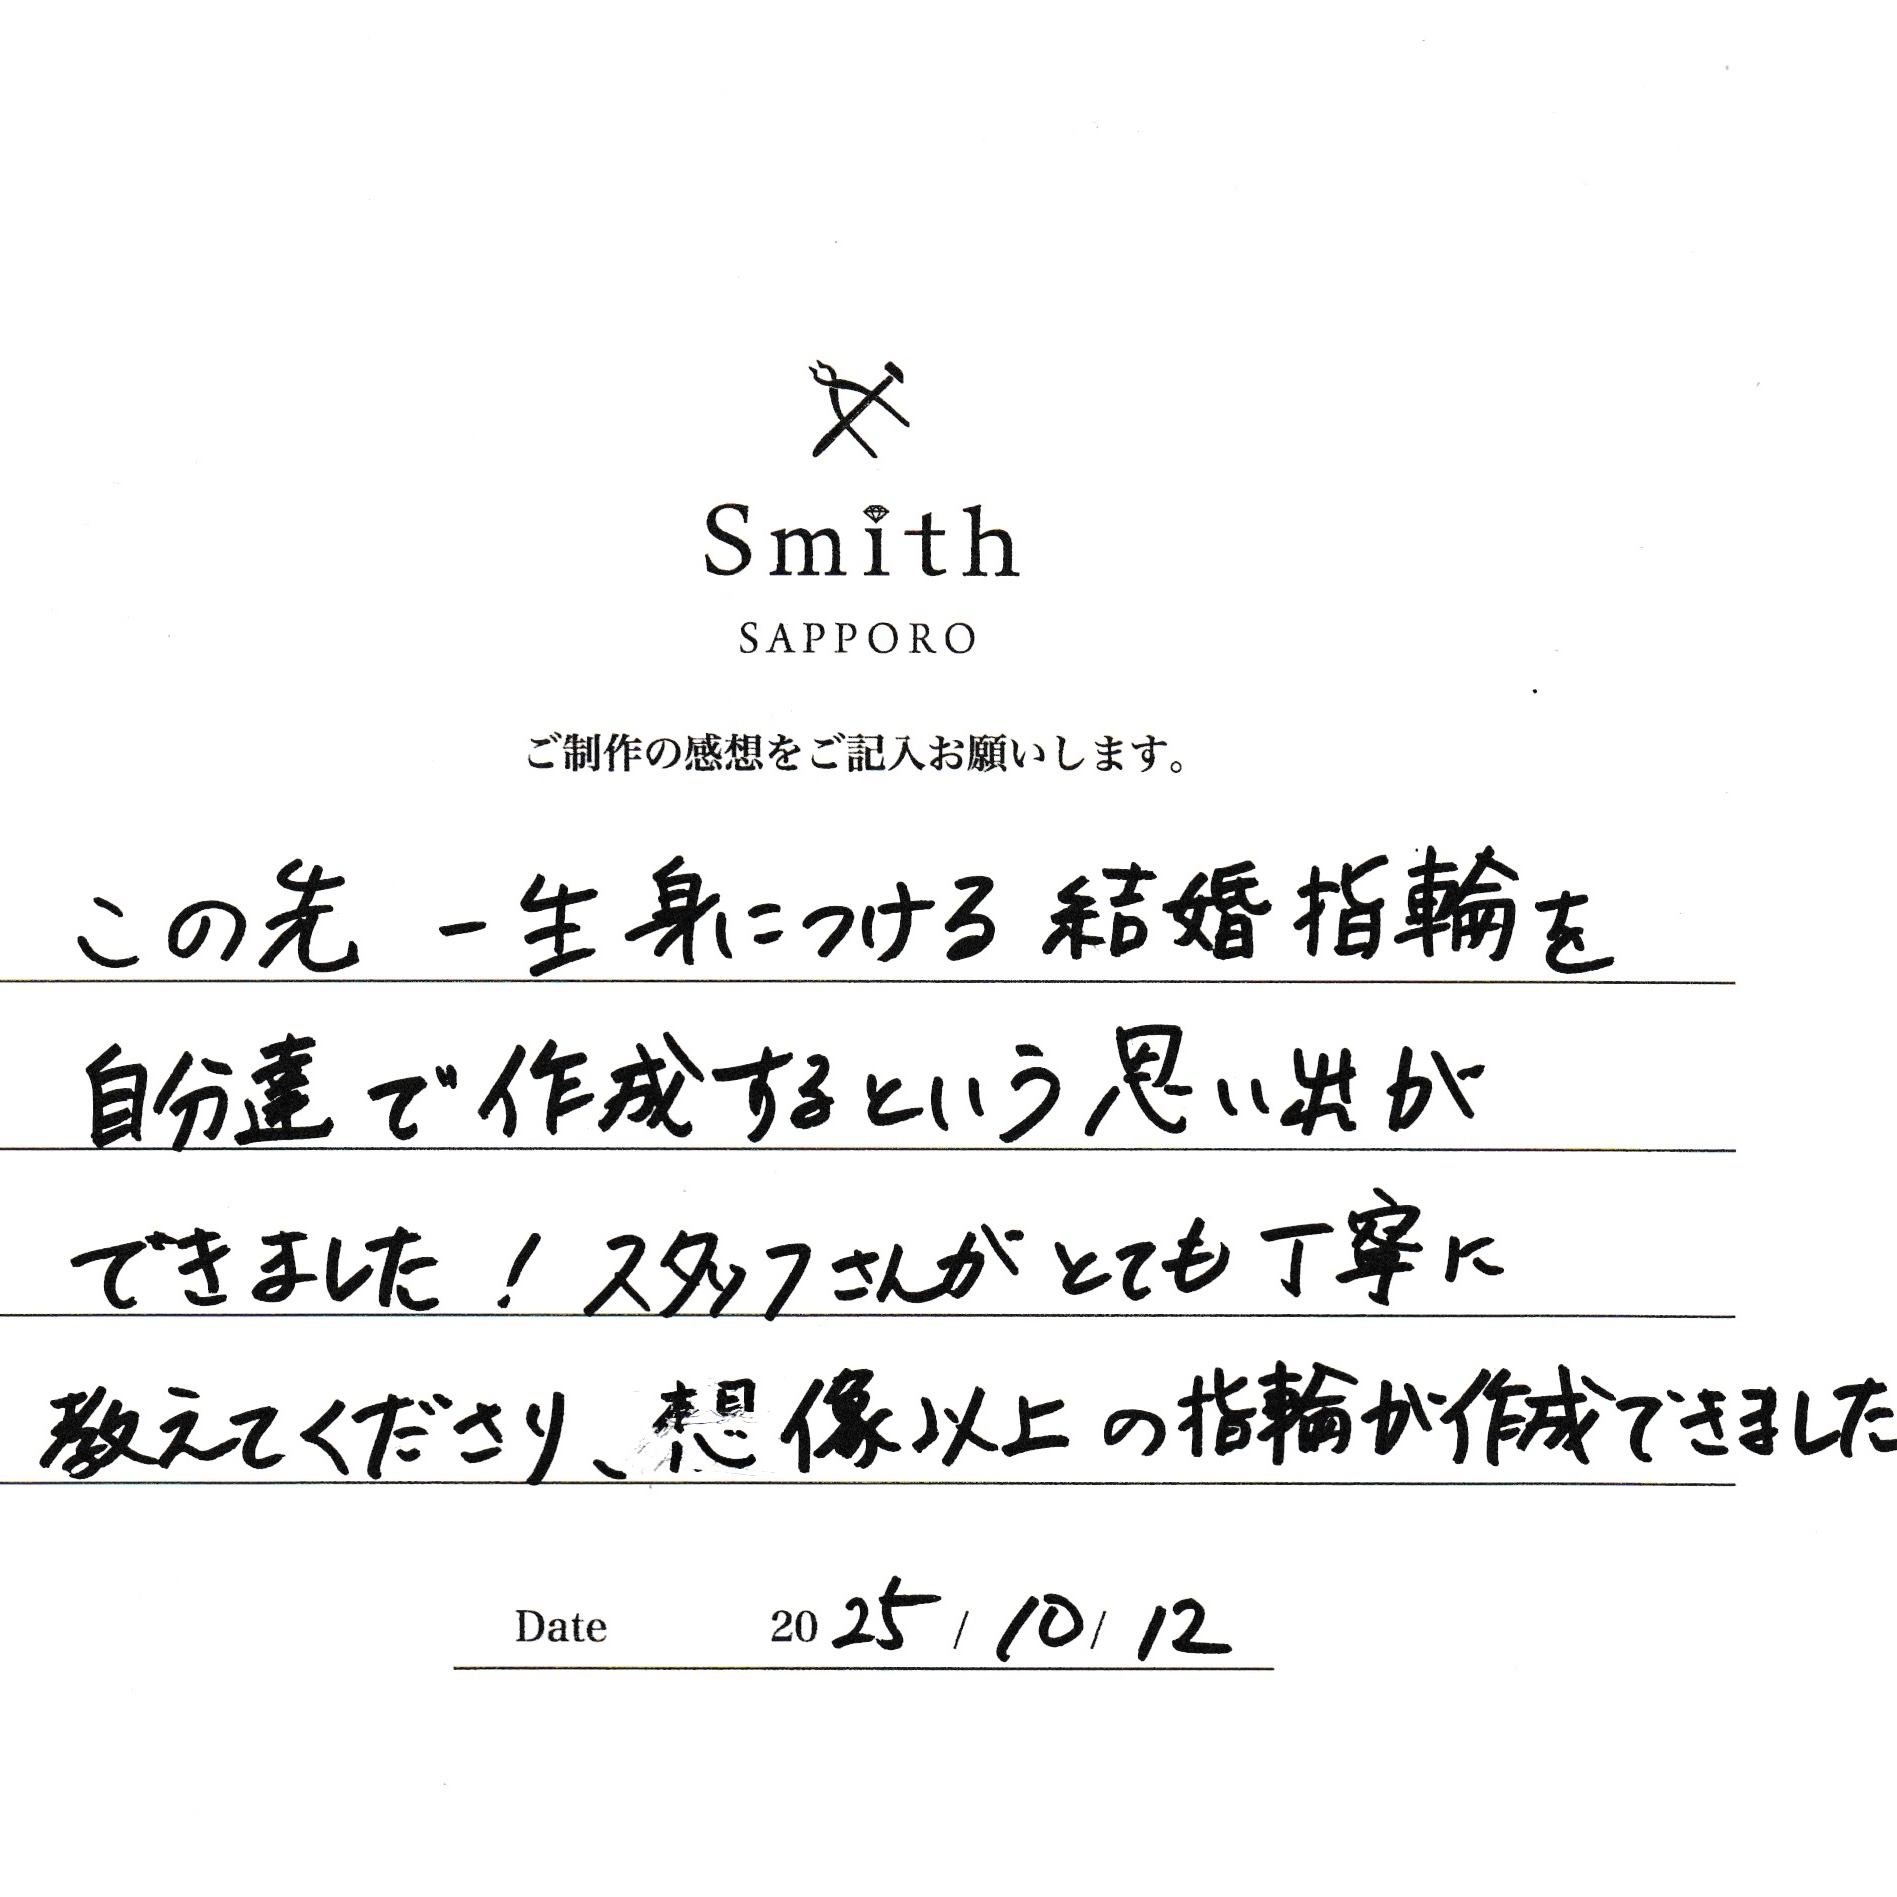 Smith
SAPPORO
ご制作の感想をご記入お願いします。
この先 一生 身につける 結婚指輪を
自分達で作成するという思い出が
できました！スタッフさんがとても丁寧に
教えてくださり、想像以上の指輪が作成できました
Date 2025/10/12